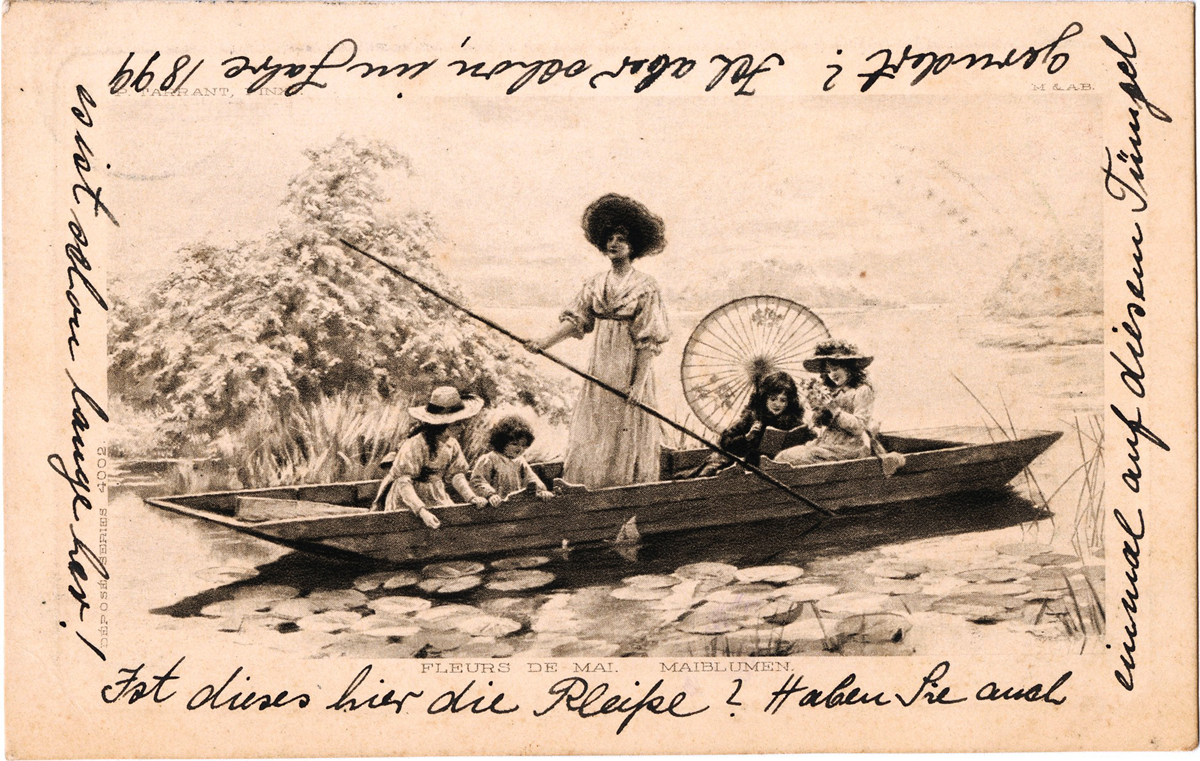 P. TARRANT, PINX.
M & A.B.
DÉPOSÉ. SERIES 4002.
FLEURS DE MAI. MAIBLUMEN.
Ist dieses hier die Pleiße? Haben Sie auch
einmal auf diesem Tümpel
gerudert? Ich aber schon, im Jahre 1899
es ist schon lange her!